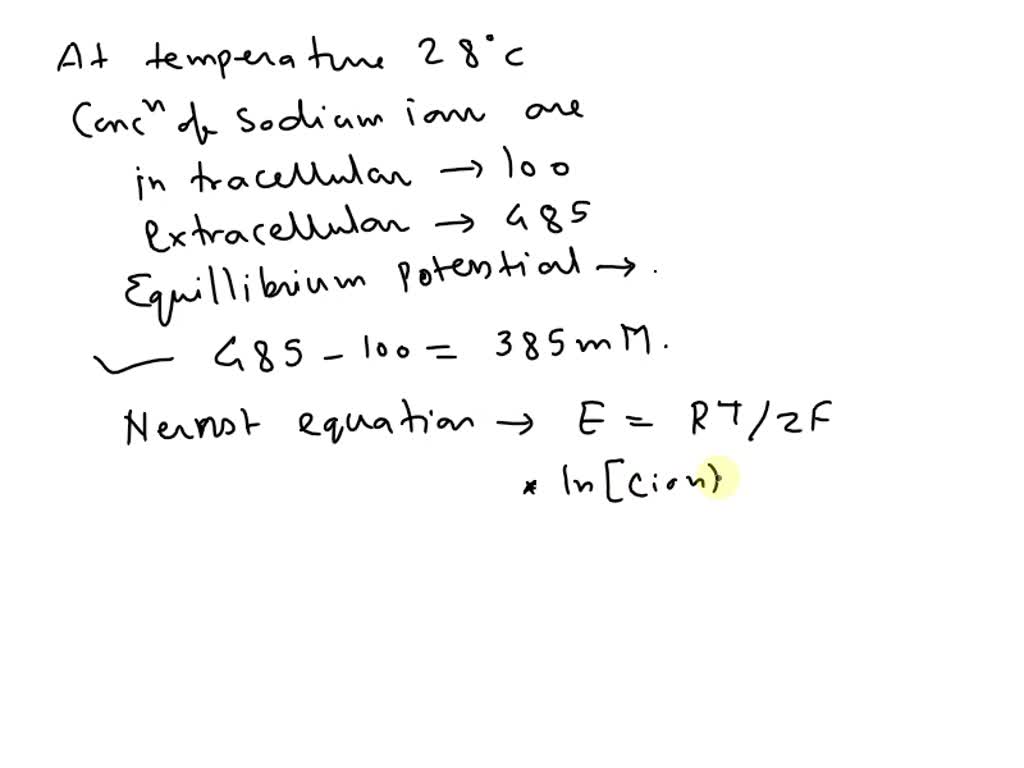 At temperature 28°C
Concⁿ of sodium ion are
intracellular → 100
extracellular → 485
Equillibrium potential → .
485 - 100 = 385 mM.
Nernst equation → E = RT/zF
* ln [cion)